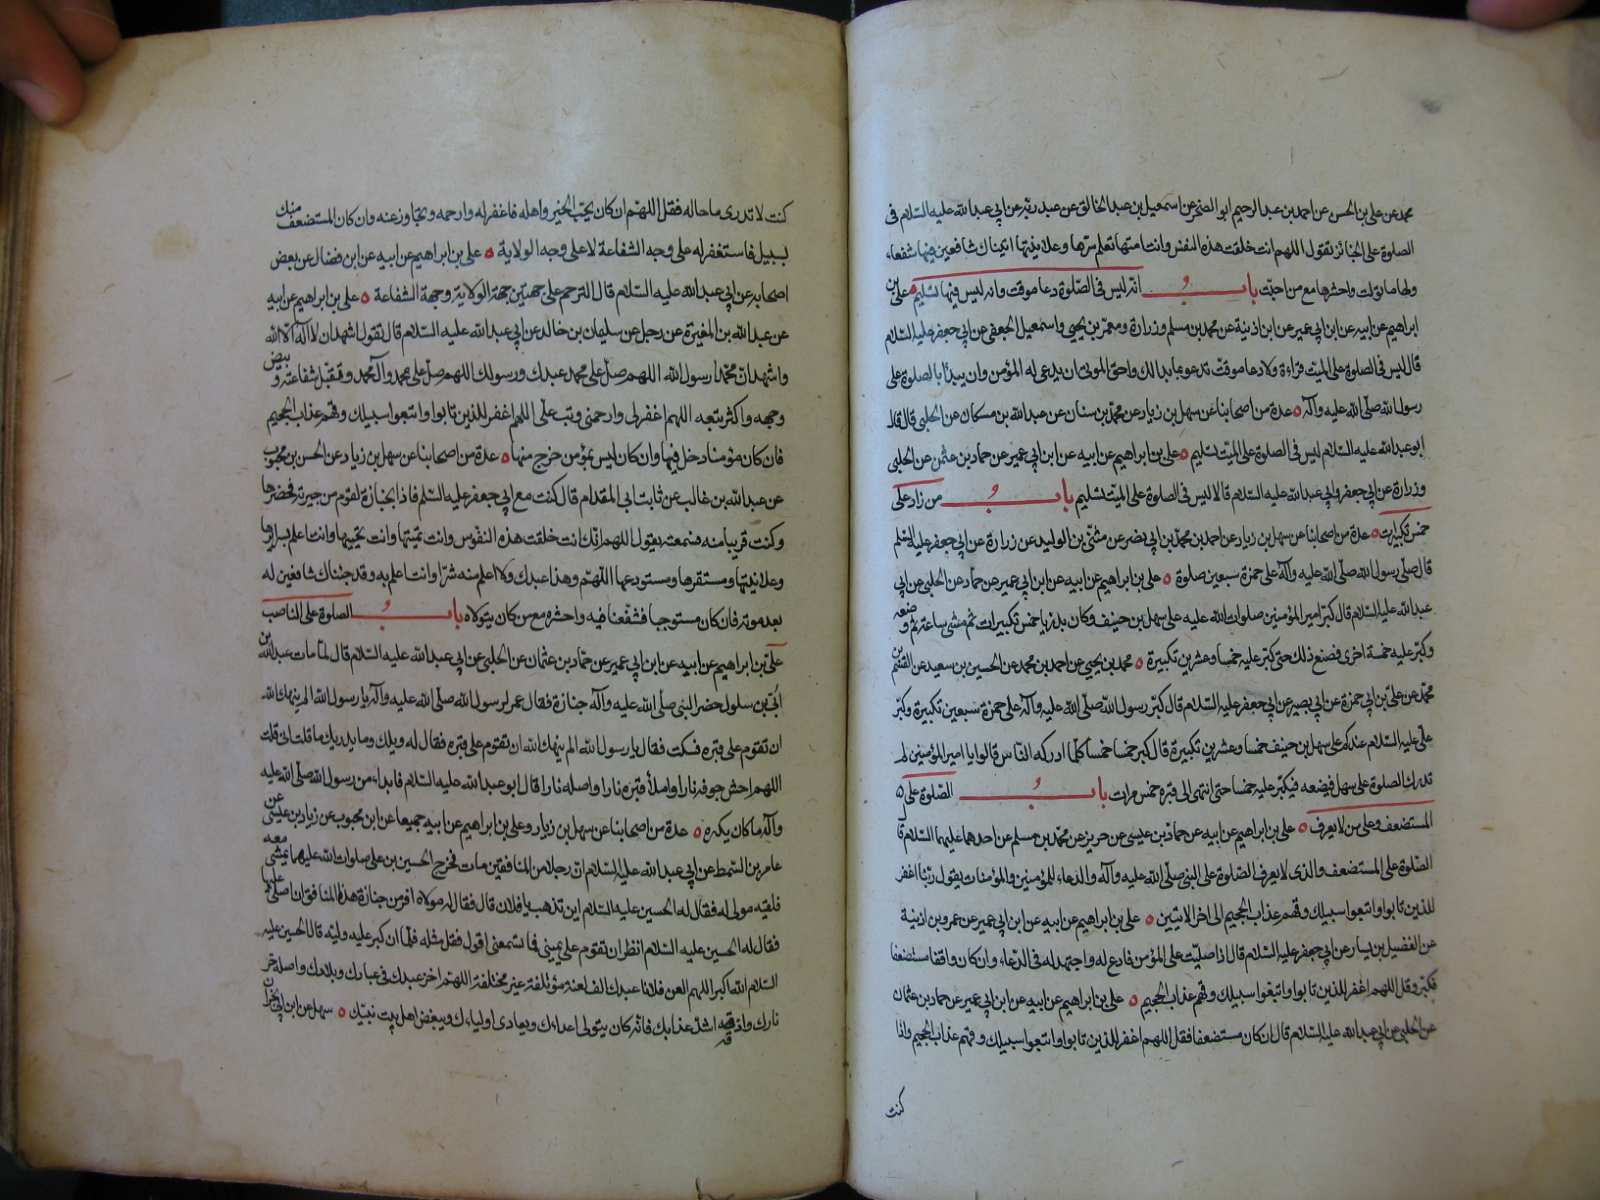 محمد عن علي بن الحسن عن احمد بن عبد الرحيم ابو الصخر عن اسمعيل بن عبد الخالق عن عبد ربه عن ابي عبد الله عليه السلام في
الصلوة على الجنائز تقول اللهم انت خلقت هذه النفس وانت امتها تعلم سرها وعلانيتها اتيناك شافعين فيها شفعاء
ولها ما تولت واحشرها مع من احبت باب انه ليس في الصلوة دعا موقت وانه ليس فيها تسليم علي بن
ابراهيم عن ابيه عن ابن ابي عمير عن ابن اذينة عن محمد بن مسلم وزرارة ومعمر بن يحيى واسمعيل الجعفي عن ابي جعفر عليه السلام
قال ليس في الصلوة على الميت قراءة ولا دعا موقت تدعو بما بدا لك واحق الموتى ان يدعى له المؤمن وان يبدأ بالصلوة على
رسول الله صلى الله عليه وآله عدة من اصحابنا عن سهل بن زياد عن محمد بن سنان عن عبد الله بن مسكان عن الحلبي قال قال
ابو عبد الله عليه السلام ليس في الصلوة على الميت تسليم علي بن ابراهيم عن ابيه عن ابن ابي عمير عن حماد بن عثمن عن الحلبي
وزرارة عن ابي جعفر وابي عبد الله عليه السلام قالا ليس في الصلوة على الميت تسليم باب من زاد على
خمس تكبيرات عدة من اصحابنا عن سهل بن زياد عن احمد بن محمد بن ابي نصر عن مثنى بن الوليد عن زرارة عن ابي جعفر عليه السلم
قال صلى رسول الله صلى الله عليه وآله على حمزة سبعين صلوة علي بن ابراهيم عن ابيه عن ابن ابي عمير عن حماد عن الحلبي عن ابي
عبد الله عليه السلام قال كبر امير المؤمنين صلوات الله عليه على سهل بن حنيف وكان بدريا خمس تكبيرات ثم مشى ساعة ثم وضعه
وكبر عليه خمسة اخرى فصنع ذلك حتى كبر عليه خمسا وعشرين تكبيرة محمد بن يحيى عن احمد بن محمد عن الحسين بن سعيد عن القسم بن
محمد عن علي بن ابي حمزة عن ابي بصير عن ابي جعفر عليه السلام قال كبر رسول الله صلى الله عليه وآله على حمزة سبعين تكبيرة وكبر
علي عليه السلام عندكم على سهل بن حنيف خمسا وعشرين تكبيرة قال كبر خمسا خمسا كلما ادركه الناس قالوا يا امير المؤمنين لم
ندرك الصلوة على سهل فيضعه فيكبر عليه خمسا حتى انتهى الى قبره خمس مرات باب الصلوة على
المستضعف وعلى من لا يعرف علي بن ابراهيم عن ابيه عن حماد بن عيسى عن حريز عن محمد بن مسلم عن احدهما عليهما السلام قا
الصلوة على المستضعف والذي لا يعرف الصلوة على النبي صلى الله عليه وآله والدعاء للمؤمنين والمؤمنات يقول ربنا اغفر
للذين تابوا واتبعوا سبيلك وقهم عذاب الجحيم الى اخر الايتين علي بن ابراهيم عن ابيه عن ابن ابي عمير عن عمر بن اذينة
عن الفضيل بن يسار عن ابي جعفر عليه السلام قال اذا صليت على المؤمن فادع له واجتهد له في الدعاء وان كان واقفا مستضعفا
فكبر وقل اللهم اغفر للذين تابوا واتبعوا سبيلك وقهم عذاب الجحيم علي بن ابراهيم عن ابيه عن ابن ابي عمير عن حماد بن عثمان
عن الحلبي عن ابي عبد الله عليه السلام قال ان كان مستضعفا فقل اللهم اغفر للذين تابوا واتبعوا سبيلك وقهم عذاب الجحيم واذا
كنت
كنت لا تدرى ما حاله فقل اللهم ان كان يحب الخير واهله فاغفر له وارحمه وتجاوز عنه وان كان المستضعف منك
بسبيل فاستغفر له على وجه الشفاعة لا على وجه الولاية علي بن ابراهيم عن ابيه عن ابن فضال عن بعض
اصحابه عن ابي عبد الله عليه السلام قال الترحم على جهتين جهة الولاية وجهة الشفاعة علي بن ابراهيم عن ابيه
عن عبد الله بن المغيرة عن رجل عن سليمان بن خالد عن ابي عبد الله عليه السلام قال تقول اشهد ان لا اله الا الله
واشهد ان محمدا رسول الله اللهم صل على محمد عبدك ورسولك اللهم صل على محمد وآل محمد وتقبل شفاعته وبيض
وجهه واكثر تبعه اللهم اغفر لي وارحمني وتب علي اللهم اغفر للذين تابوا واتبعوا سبيلك وقهم عذاب الجحيم
فان كان مؤمنا دخل فيها وان كان ليس بمؤمن خرج منها عدة من اصحابنا عن سهل بن زياد عن الحسن بن محبوب
عن عبد الله بن غالب عن ثابت ابي المقدام قال كنت مع ابي جعفر عليه السلم فاذا بجنازة لقوم من جيرته فحضرها
وكنت قريبا منه فسمعته يقول اللهم انك انت خلقت هذه النفوس وانت تميتها وانت تحييها وانت اعلم بسرائرها
وعلانيتها ومستقرها ومستودعها اللهم وهذا عبدك ولا اعلم منه شرا وانت اعلم به وقد جئناك شافعين له
بعد موته فان كان مستوجبا فشفعنا فيه واحشره مع من كان يتولاه باب الصلوة على الناصب
علي بن ابراهيم عن ابيه عن ابن ابي عمير عن حماد بن عثمان عن الحلبي عن ابي عبد الله عليه السلام قال لما مات عبد الله بن
ابي بن سلول حضر النبي صلى الله عليه وآله جنازة فقال عمر لرسول الله صلى الله عليه وآله يا رسول الله الم ينهك الله
ان تقوم على قبره فسكت فقال يا رسول الله الم ينهك الله ان تقوم على قبره فقال له ويلك وما يدريك ما قلت اني قلت
اللهم احش جوفه نارا واملأ قبره نارا واصله نارا قال ابو عبد الله عليه السلام فابداء من رسول الله صلى الله عليه
وآله ما كان يكره عدة من اصحابنا عن سهل بن زياد وعلي بن ابراهيم عن ابيه جميعا عن ابن محبوب عن زياد بن عيسى عن
عامر بن السمط عن ابي عبد الله عليه السلام ان رجلا من المنافقين مات فخرج الحسين بن علي صلوات الله عليهما يمشى معه
فلقيه مولى له فقال له الحسين عليه السلام اين تذهب يا فلان قال فقال له مولاه افر من جنازة هذا المنافق ان اصلى عليها
فقال له الحسين عليه السلام انظر ان تقوم على يميني فما تسمعني اقول فقل مثله فلما ان كبر عليه وليه قال الحسين عليه
السلام الله اكبر اللهم العن فلانا عبدك الف لعنة مؤتلفة غير مختلفة اللهم اخز عبدك في عبادك وبلادك واصله حر
نارك واذقه اشد عذابك فانه كان يتولى اعداءك ويعادى اولياءك ويبغض اهل بيت نبيك سهل عن ابن ابي نجران